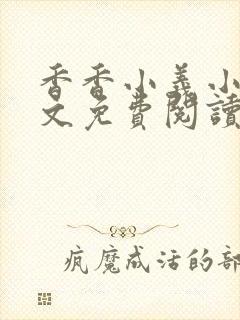 香香小義小
文免費閱讀
疯魔成活的部